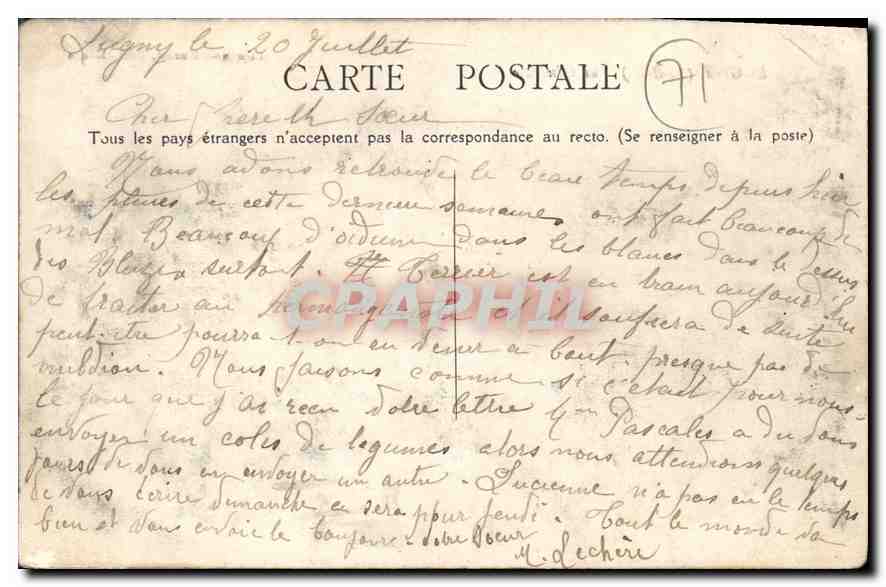 Lugny le 20 Juillet
71
CARTE POSTALE
Cher frère et sœur
Tous les pays étrangers n'acceptent pas la correspondance au recto. (Se renseigner à la poste)
Nous avons retrouvé le beau temps depuis hier
les pluies de cette dernière semaine ont fait beaucoup de
mal. Beaucoup d'oïdium dans les blancs dans le dessus
des surtout. Terrier est en train aujourd'hui
de traiter au permanganate et il soufrera de suite
peut-être pourra-t-on en venir à bout. presque pas de
mildiou. Nous faisons comme si c'était pour nous.
le jour que j'ai reçu votre lettre Pascales a du vous
envoyer un colis de legumes alors nous attendrons quelques
jours de vous en envoyer un autre. Lucienne n'a pas eu le temps
de vous écrire dimanche ce sera pour jeudi. Tout le monde va
bien et vous envoie le bonjour. votre sœur
M. Lechère
CPAPHIL